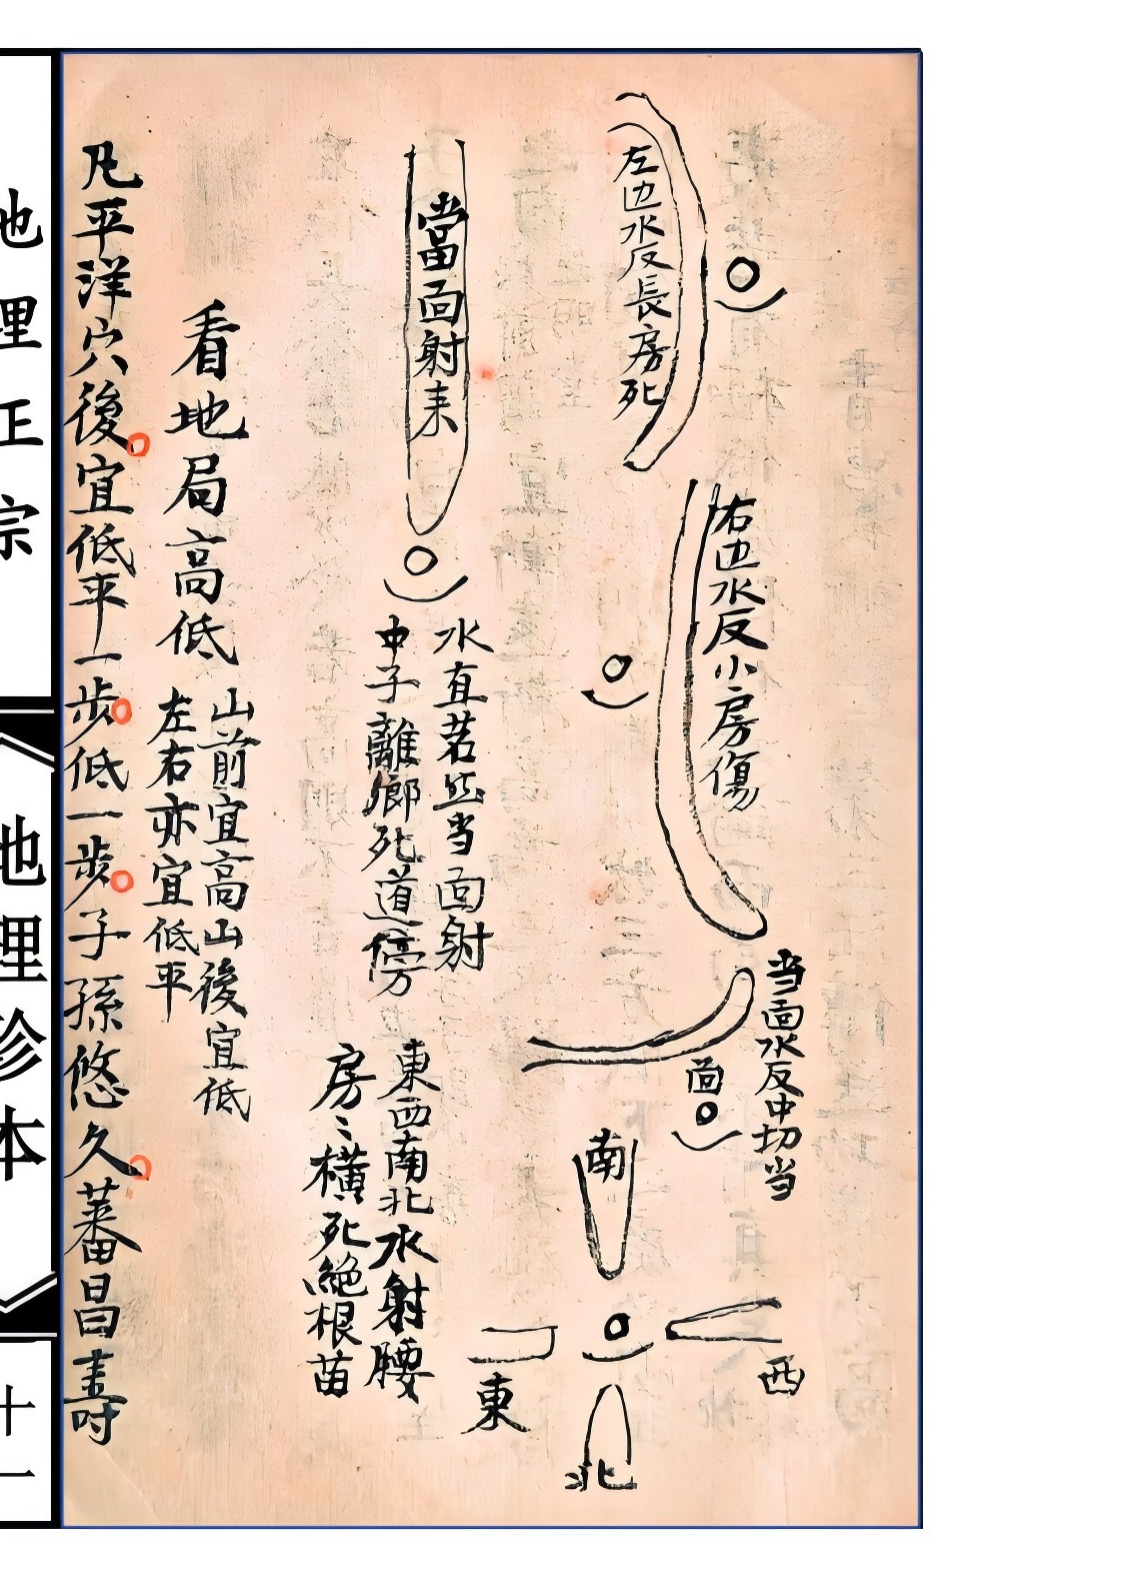 左边水反長房死
右边水反小房傷
当面水反中切当
面
南
西
東
北
當面射来
水直若然当面射
中子離鄉死道傍
東西南北水射腰
房〻橫死絕根苗
看地局高低
山前宜高山後宜低
左右亦宜低平
凡平洋穴後宜低平一步低一步子孫悠久蕃昌壽
地理正宗
《地理珍本》
十一